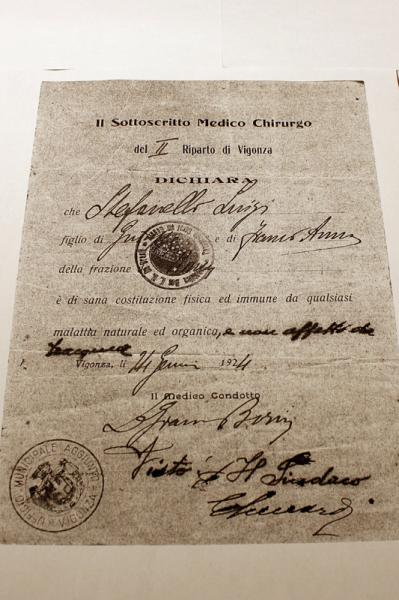 Il Sottoscritto Medico Chirurgo
del II Riparto di Vigonza
DICHIARA
che Stefanello Luigi
figlio di e di Anna
della frazione
è di sana costituzione fisica ed immune da qualsiasi
malattia naturale ed organica, e non affetto da
Vigonza, li 24 1924
Il Medico Condotto
Visto Il Sindaco
MUNICIPALE VIGONZA